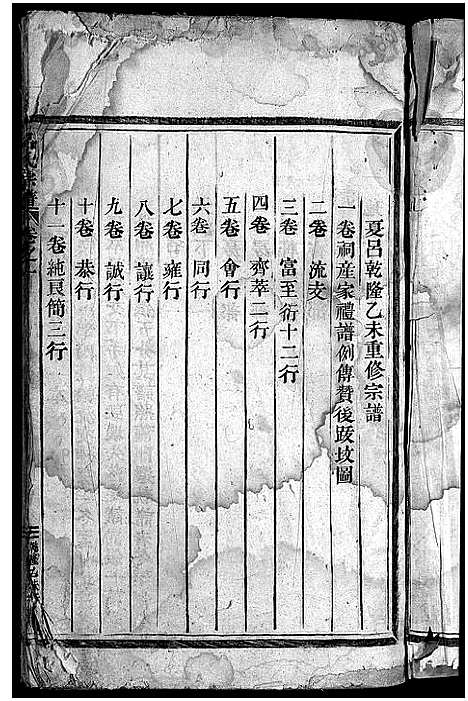 夏呂乾隆乙未重修宗譜
一卷祠産家禮譜例傳贊後跋坟圖
二卷 流支
三卷 富至衍十二行
四卷 齊萃二行
五卷 會行
六卷 同行
七卷 雍行
八卷 讓行
九卷 誠行
十卷 恭行
十一卷純良簡三行
氏宗譜